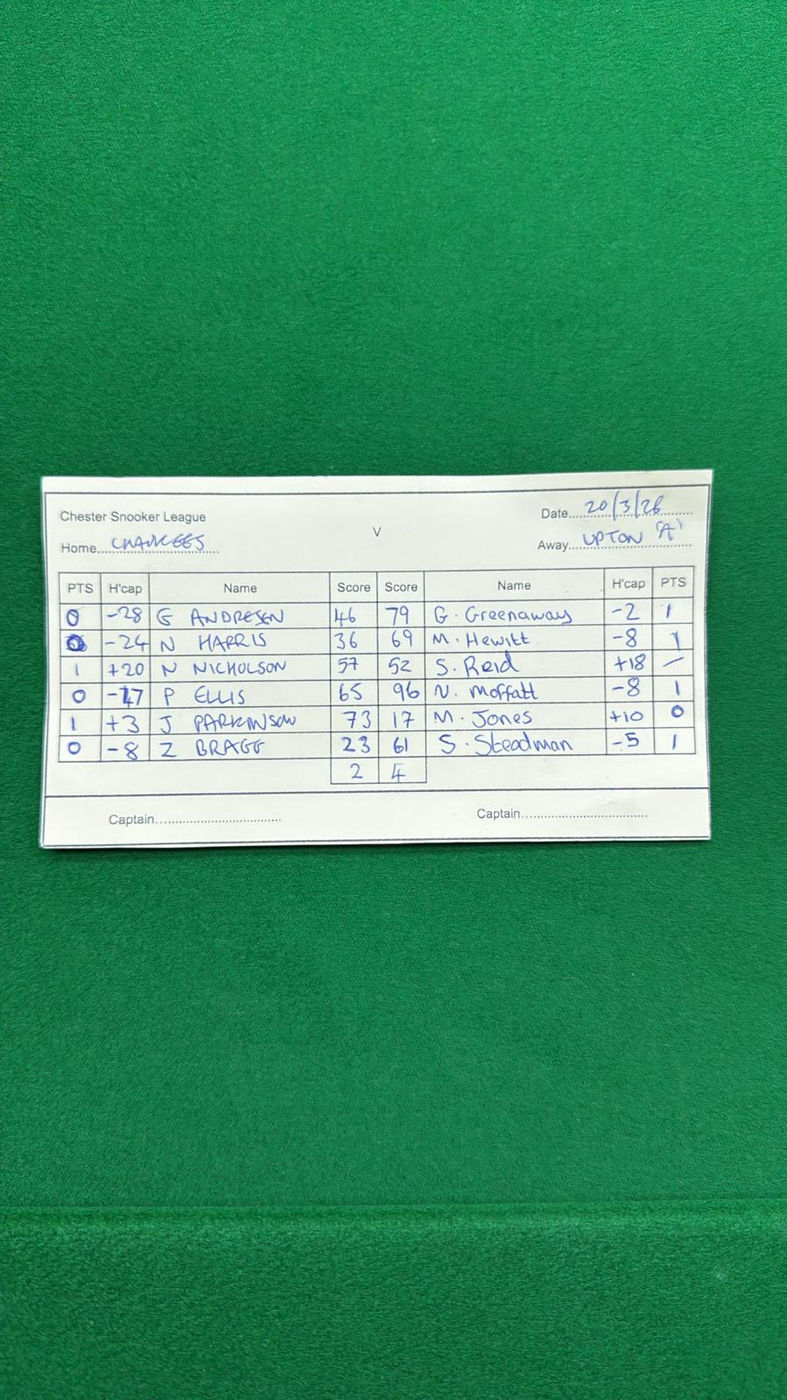 Chester Snooker League
Date 20/3/26
V
Home CHAWKEES
Away UPTON 'A'
PTS H'cap Name Score Score Name H'cap PTS
0 -28 G ANDRESEN 46 79 G. Greenaway -2 1
0 -24 N HARRIS 36 69 M. Hewitt -8 1
1 +20 N NICHOLSON 57 52 S. Reid +18 –
0 -17 P ELLIS 65 96 N. Moffatt -8 1
1 +3 J PARKINSON 73 17 M. Jones +10 0
0 -8 Z BRAGG 23 61 S. Steadman -5 1
2 4
Captain
Captain